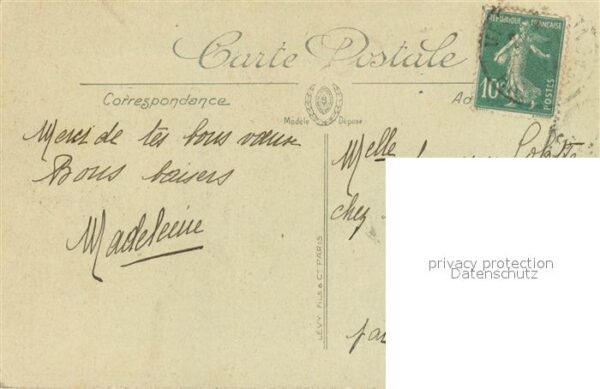 Carte Postale
RÉPUBLIQUE FRANÇAISE
10
POSTES
Correspondance
Ad
Modèle Déposé
Merci de tes bons vœux
Bons baisers
Madeleine
LÉVY FILS & Cie PARIS
Melle
chez
privacy protection
Datenschutz